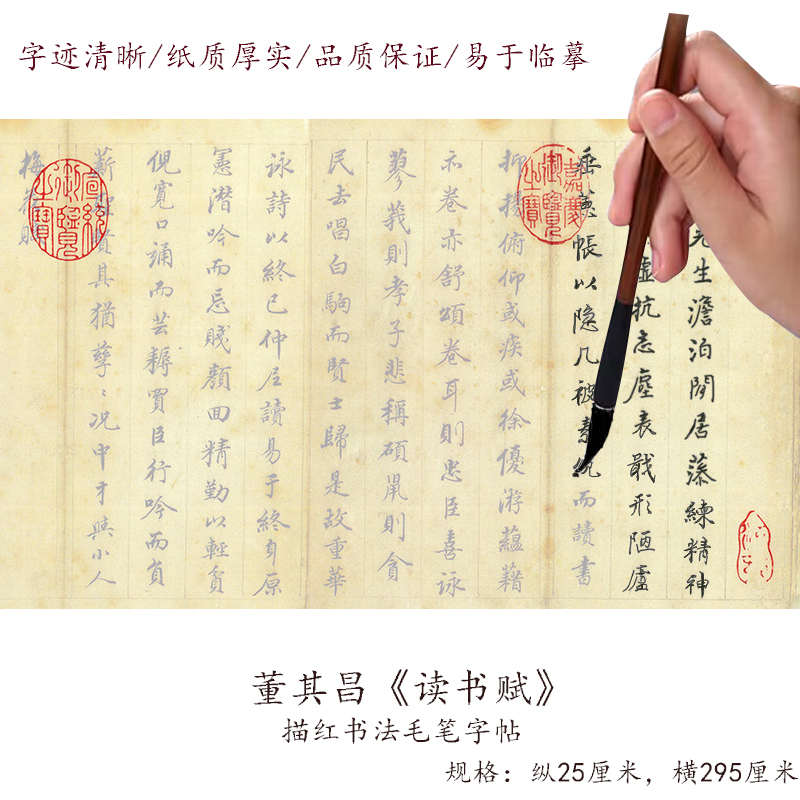 字迹清晰/纸质厚实/品质保证/易于临摹
先生澹泊閒居藻練精神
虛抗志塵表戢形陋廬
垂帳以隐几被素紈而讀書
抑揚俯仰或疾或徐優游蘊藉
亦卷亦舒頌卷耳則忠臣喜詠
蓼莪則孝子悲稱碩鼠則貪
民去唱白駒而賢士歸是故重華
詠詩以終已仲尼讀易于終身原
憲潛吟而忘賤顏回精勤以輕貧
倪寬口誦而芸耨買臣行吟而負
薪聖賢其猶孳〻况中才與小人
梅花賦
嘉慶御覽之寶
宣統御覽之寶
董其昌《读书赋》
描红书法毛笔字帖
规格：纵25厘米，横295厘米